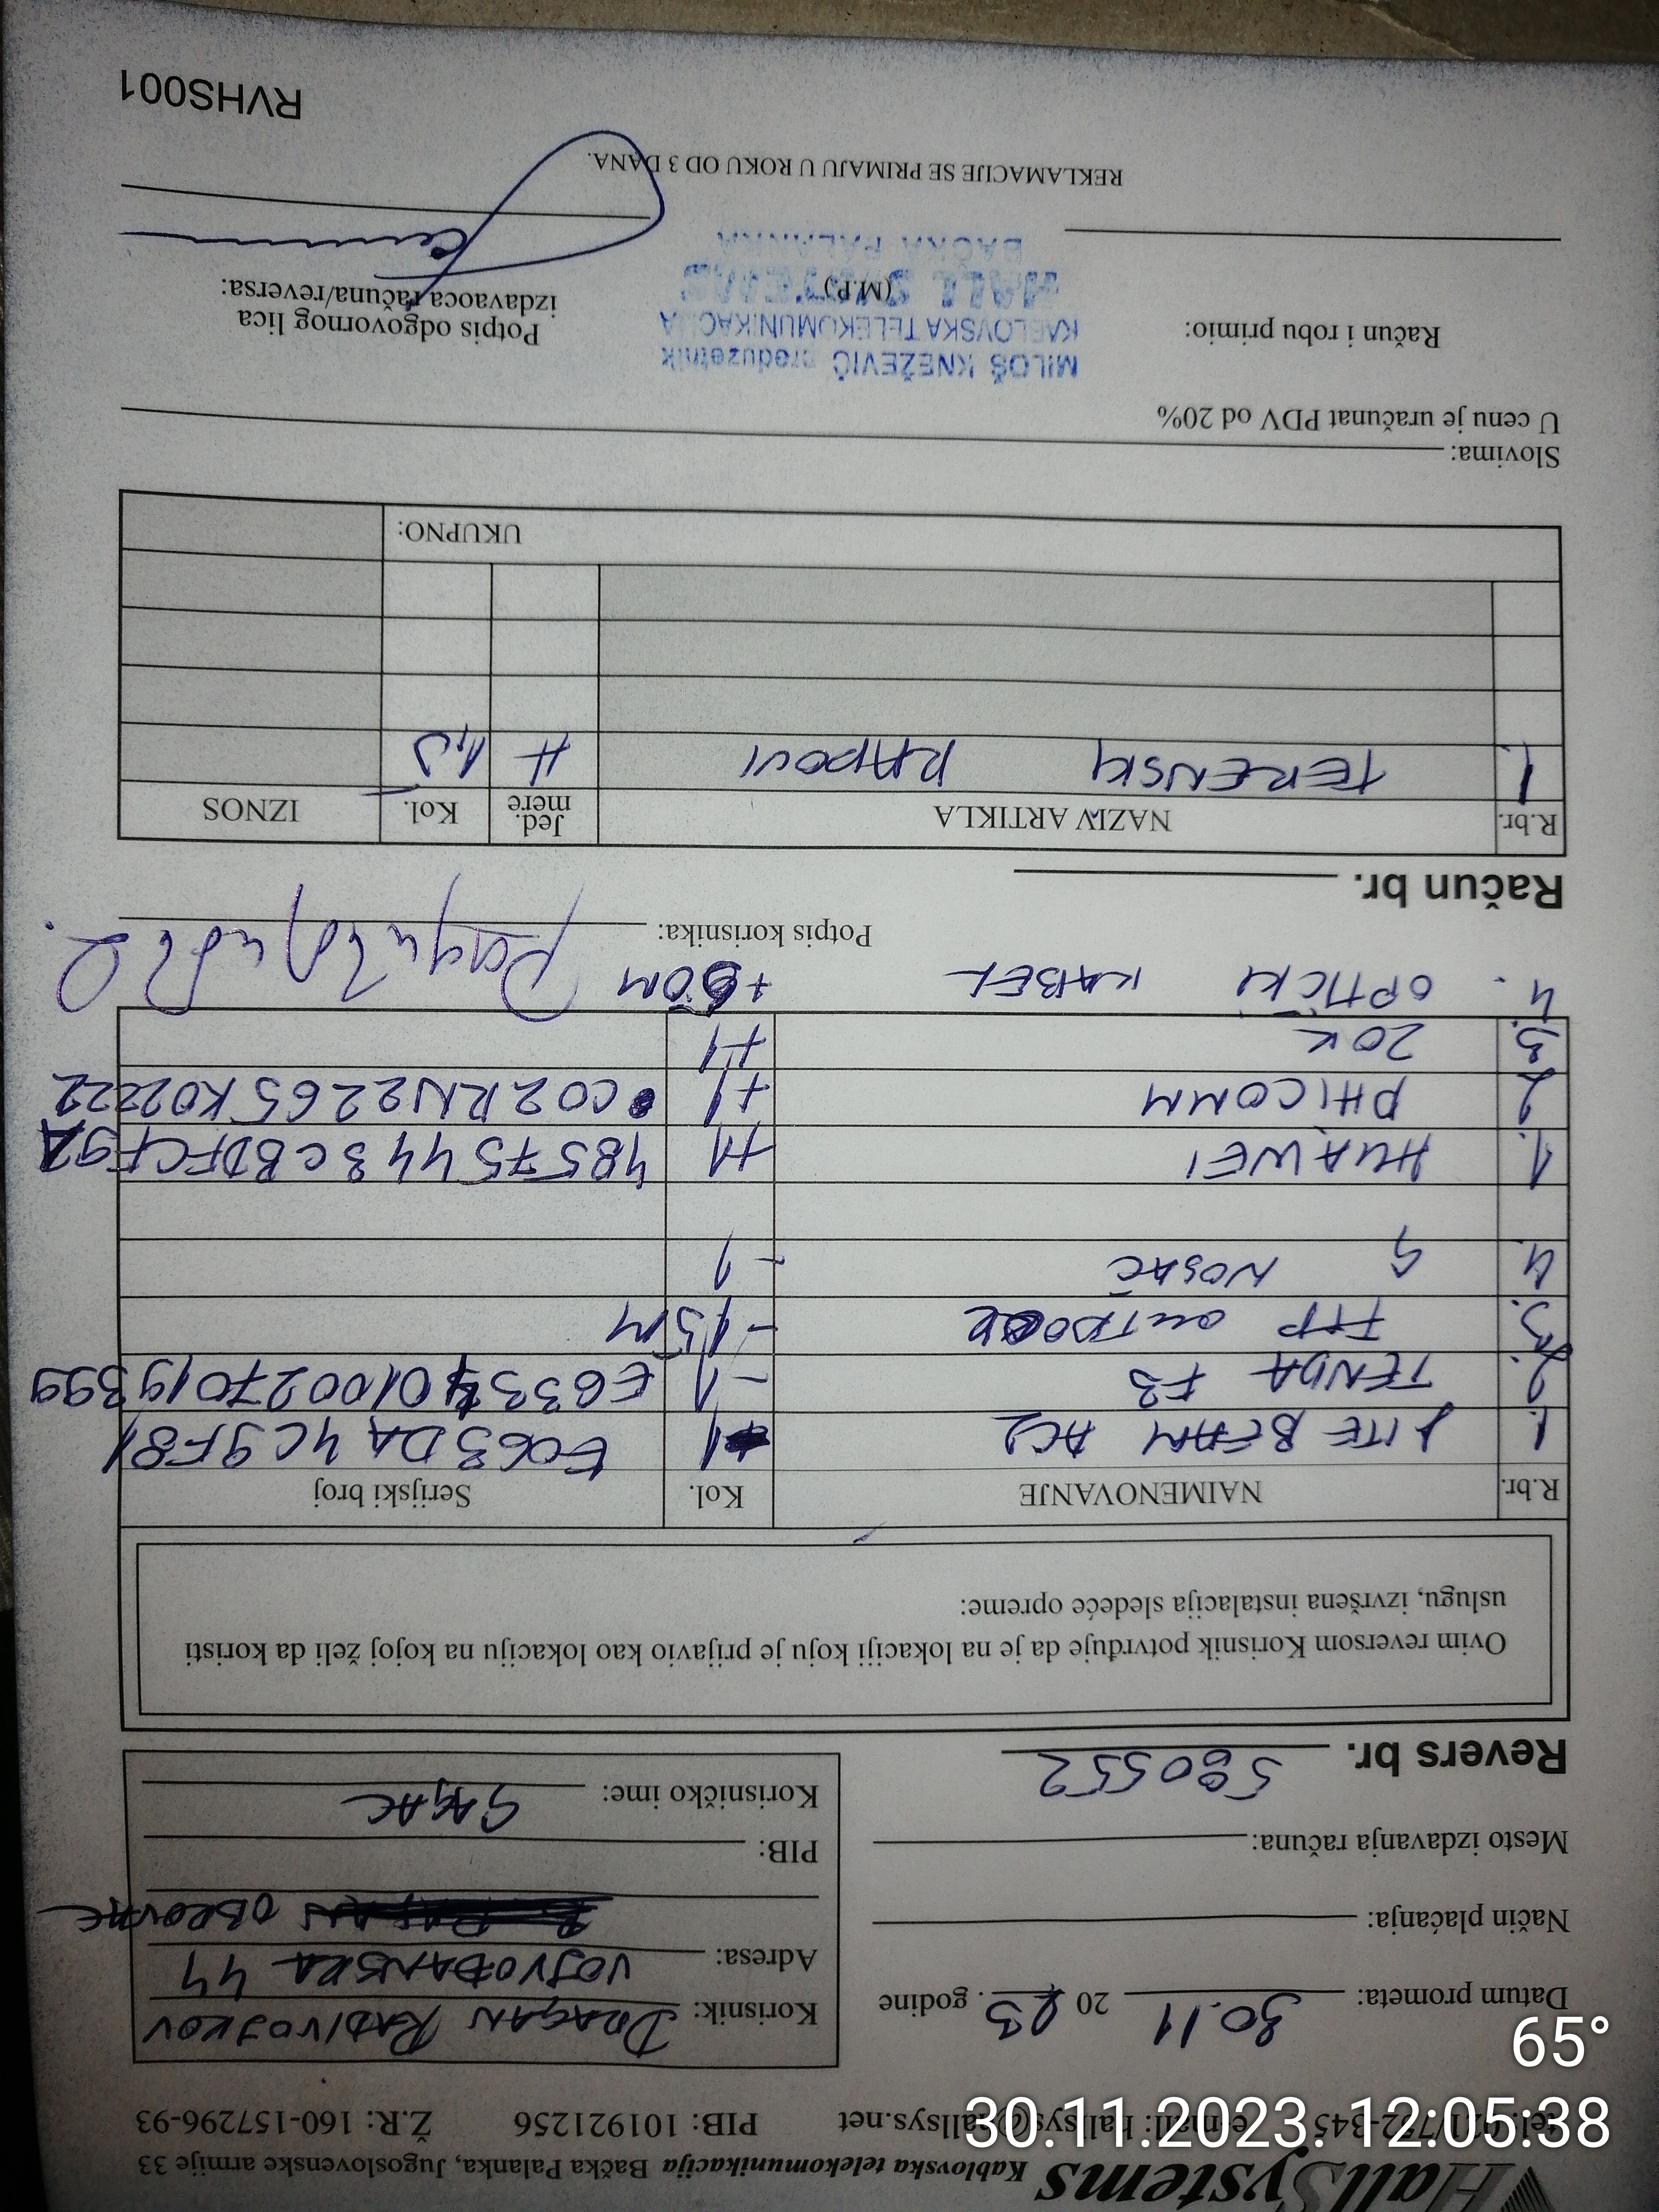 HallSystems Kablovska telekomunikacija Bačka Palanka, Jugoslovenske armije 33
PIB: 101921256 Ž.R: 160-157296-93
Datum prometa: 30.11 2023. godine
Način plaćanja:
Mesto izdavanja računa:
Korisnik: DRAGAN RADIVOJKOV
Adresa: VOJVOĐANSKA 44
OBROVAC
PIB:
Korisničko ime: GAJAC
Revers br. 580552
Ovim reversom Korisnik potvrđuje da je na lokaciji koju je prijavio kao lokaciju na kojoj želi da koristi
uslugu, izvršena instalacija sledeće opreme:
R.br. NAIMENOVANJE Kol. Serijski broj
1. LITE BEAM AC2 -1 E063DA4C9F81
2. TENDA F3 -1 E6334010027019399
3. FTP OUTDOOR -15M
4. NOSAČ -1
1. HUAWEI +1 48575443CBDFCF9A
2 PHICOMM +1 C02RN2265K022222
3. ZOK +1
4. OPTIČKI KABEL +60M
Potpis korisnika:
Račun br.
R.br. NAZIV ARTIKLA Jed. mere Kol. IZNOS
1. TERENSKI RADOVI H 1,5
UKUPNO:
Slovima:
U cenu je uračunat PDV od 20%
MILOŠ KNEŽEVIĆ preduzetnik
KABLOVSKA TELEKOMUNIKACIJA
HALL SYSTEMS
BAČKA PALANKA
Račun i robu primio:
(M.P.)
Potpis odgovornog lica
izdavaoca računa/reversa:
REKLAMACIJE SE PRIMAJU U ROKU OD 3 DANA.
RVHS001
65°
30.11.2023. 12:05:38